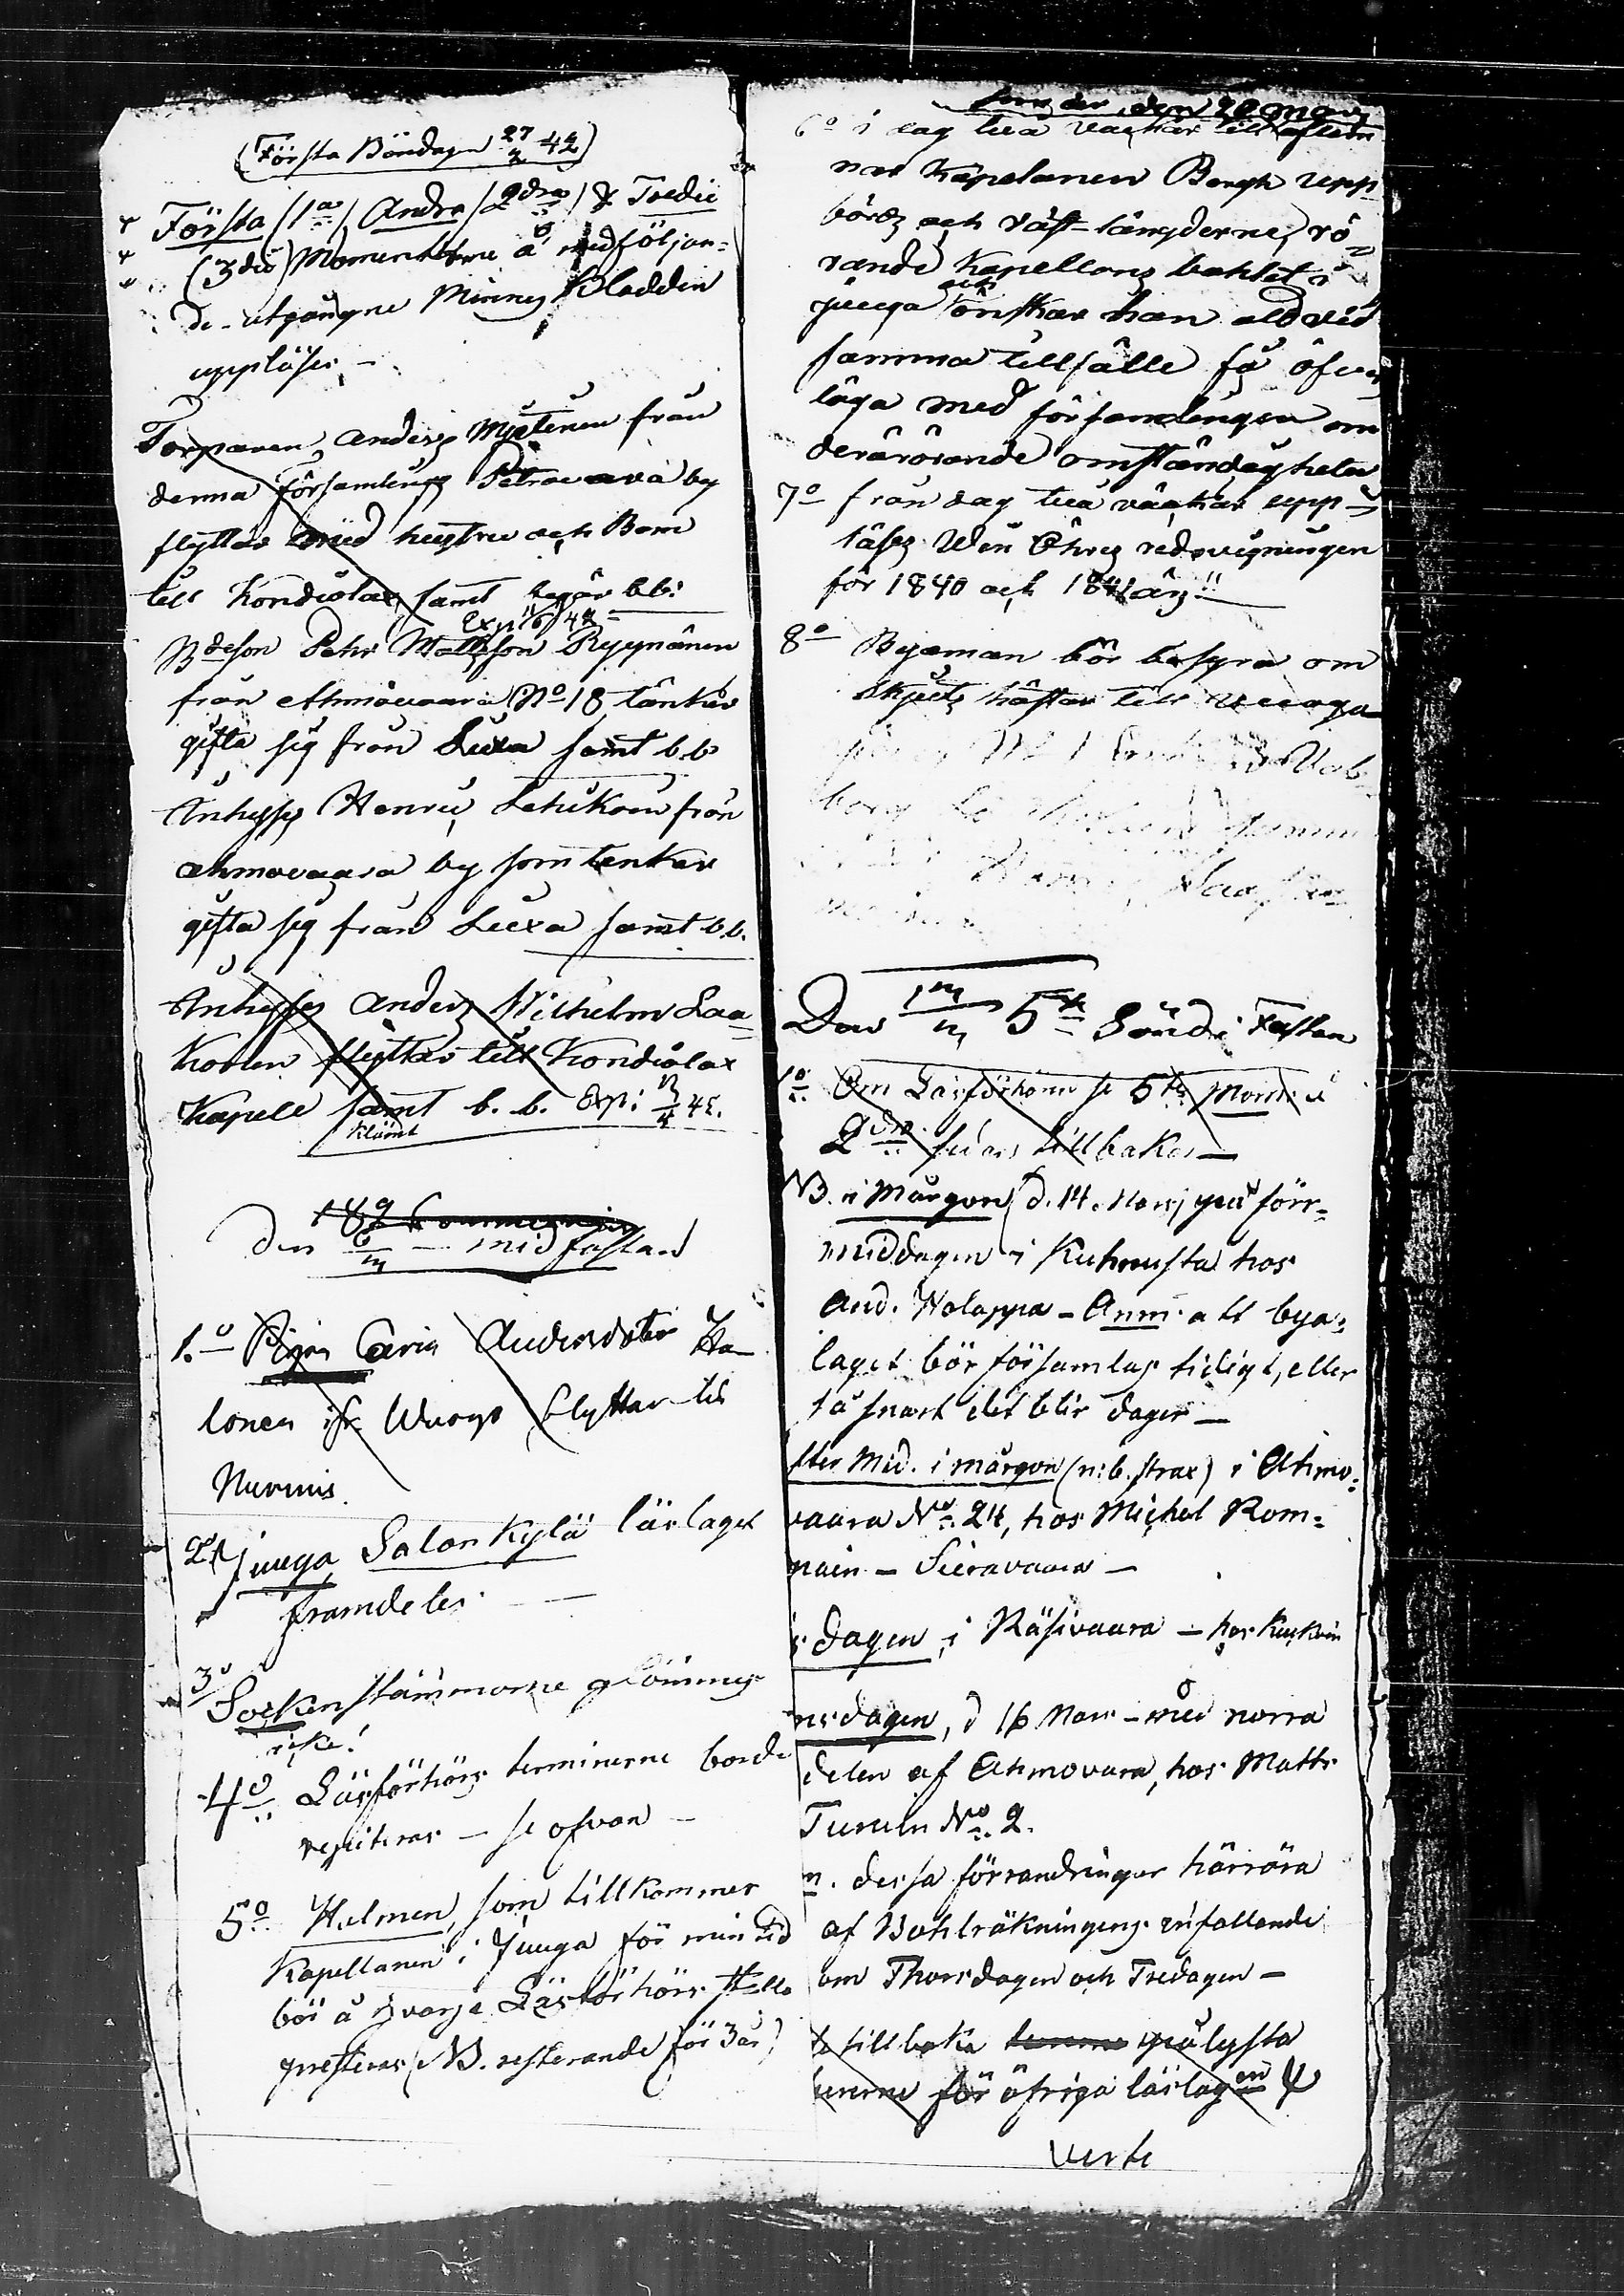 (Första Böndagn 27/2 42)
Första (1a) Andra (2dra) & Tredie
(3die) Momenterne å medföljan=
de utgångne Minnes Bladden
uppläses –
Torparen Anders Mustonen från
denna församlings Petrovaara by
flyttar med hustru och Barn
till Kondiolax samt begär bb:
Exp: 1/6 42
Bdeson Pehr Mattsson Ryynänen
från Ahmovaara No 18 tänker
gifta sig från Liexa samt b.b
Inhyses Henric Letukoin från
Ahmovaara by som tenker
gifta sig från Liexa samt b.b.
Inhyses Anders Wilhelm Laa=
konen flyttar till Kondiolax
Kapell samt b. b. Exp:
Den 6/3 – midfastan
1.o Pigan Caria Andersdotter Ha-
lonen ifr. Wuoys flyttar till
Nurmis.
2o Juuga Salonkylä läslaget
framdeles –
3o Sockenstämmorne glömmes
icke!
4o Läsförhörs terminerne borde
repiteras – se ofvan –
5o Hulmen, som tillkommer
Kapellanen i Juuga för min tid
bör å hvarje Läsförhörs ställe
presteras (NB. resterande för 3 år)
6o i dag två veckor till aflem
nar Kapelanen Bergh upp
börds och räst-längderne, rö
rande Kapellans bohlet i
Juuga och önskar han att vid
samma tillfälle få öfver
läga med församlingen om
derårörande omständigheter
7o från dag två veckor upp
läses Win Öhres redovigningen
för 1840 och 1841 års
8o Byaman bör besyra om
skjuts hästar till
Den 13/3 5te Sönd. i Fastan
1o Om Läsförhören se 5te Mom: å
2dra sidan tillbaka –
NB. i Mårgon d. 14. Mars, på förr=
middagen i Kuhnusta hos
And. Wolappa – Anm. att bya=
laget bör församlas tidigt, eller
så snart det blir dager –
fter Mid. i mårgon (n:b. strax) i Ahmo=
vaara No 24, hos Michel Rom=
pain – Siiravaara –
sdagen, i Räsivaara – hos
nsdagen, d 16 Mars – med norra
delen af Ahmovara, hos Matts
Turuln No 2.
n. dessa förrandringar härröra
af Bohlräkningens infallande
om Thorsdagen och Fredagen –
tillbaka pålysta
för öfriga läslagen
Verte